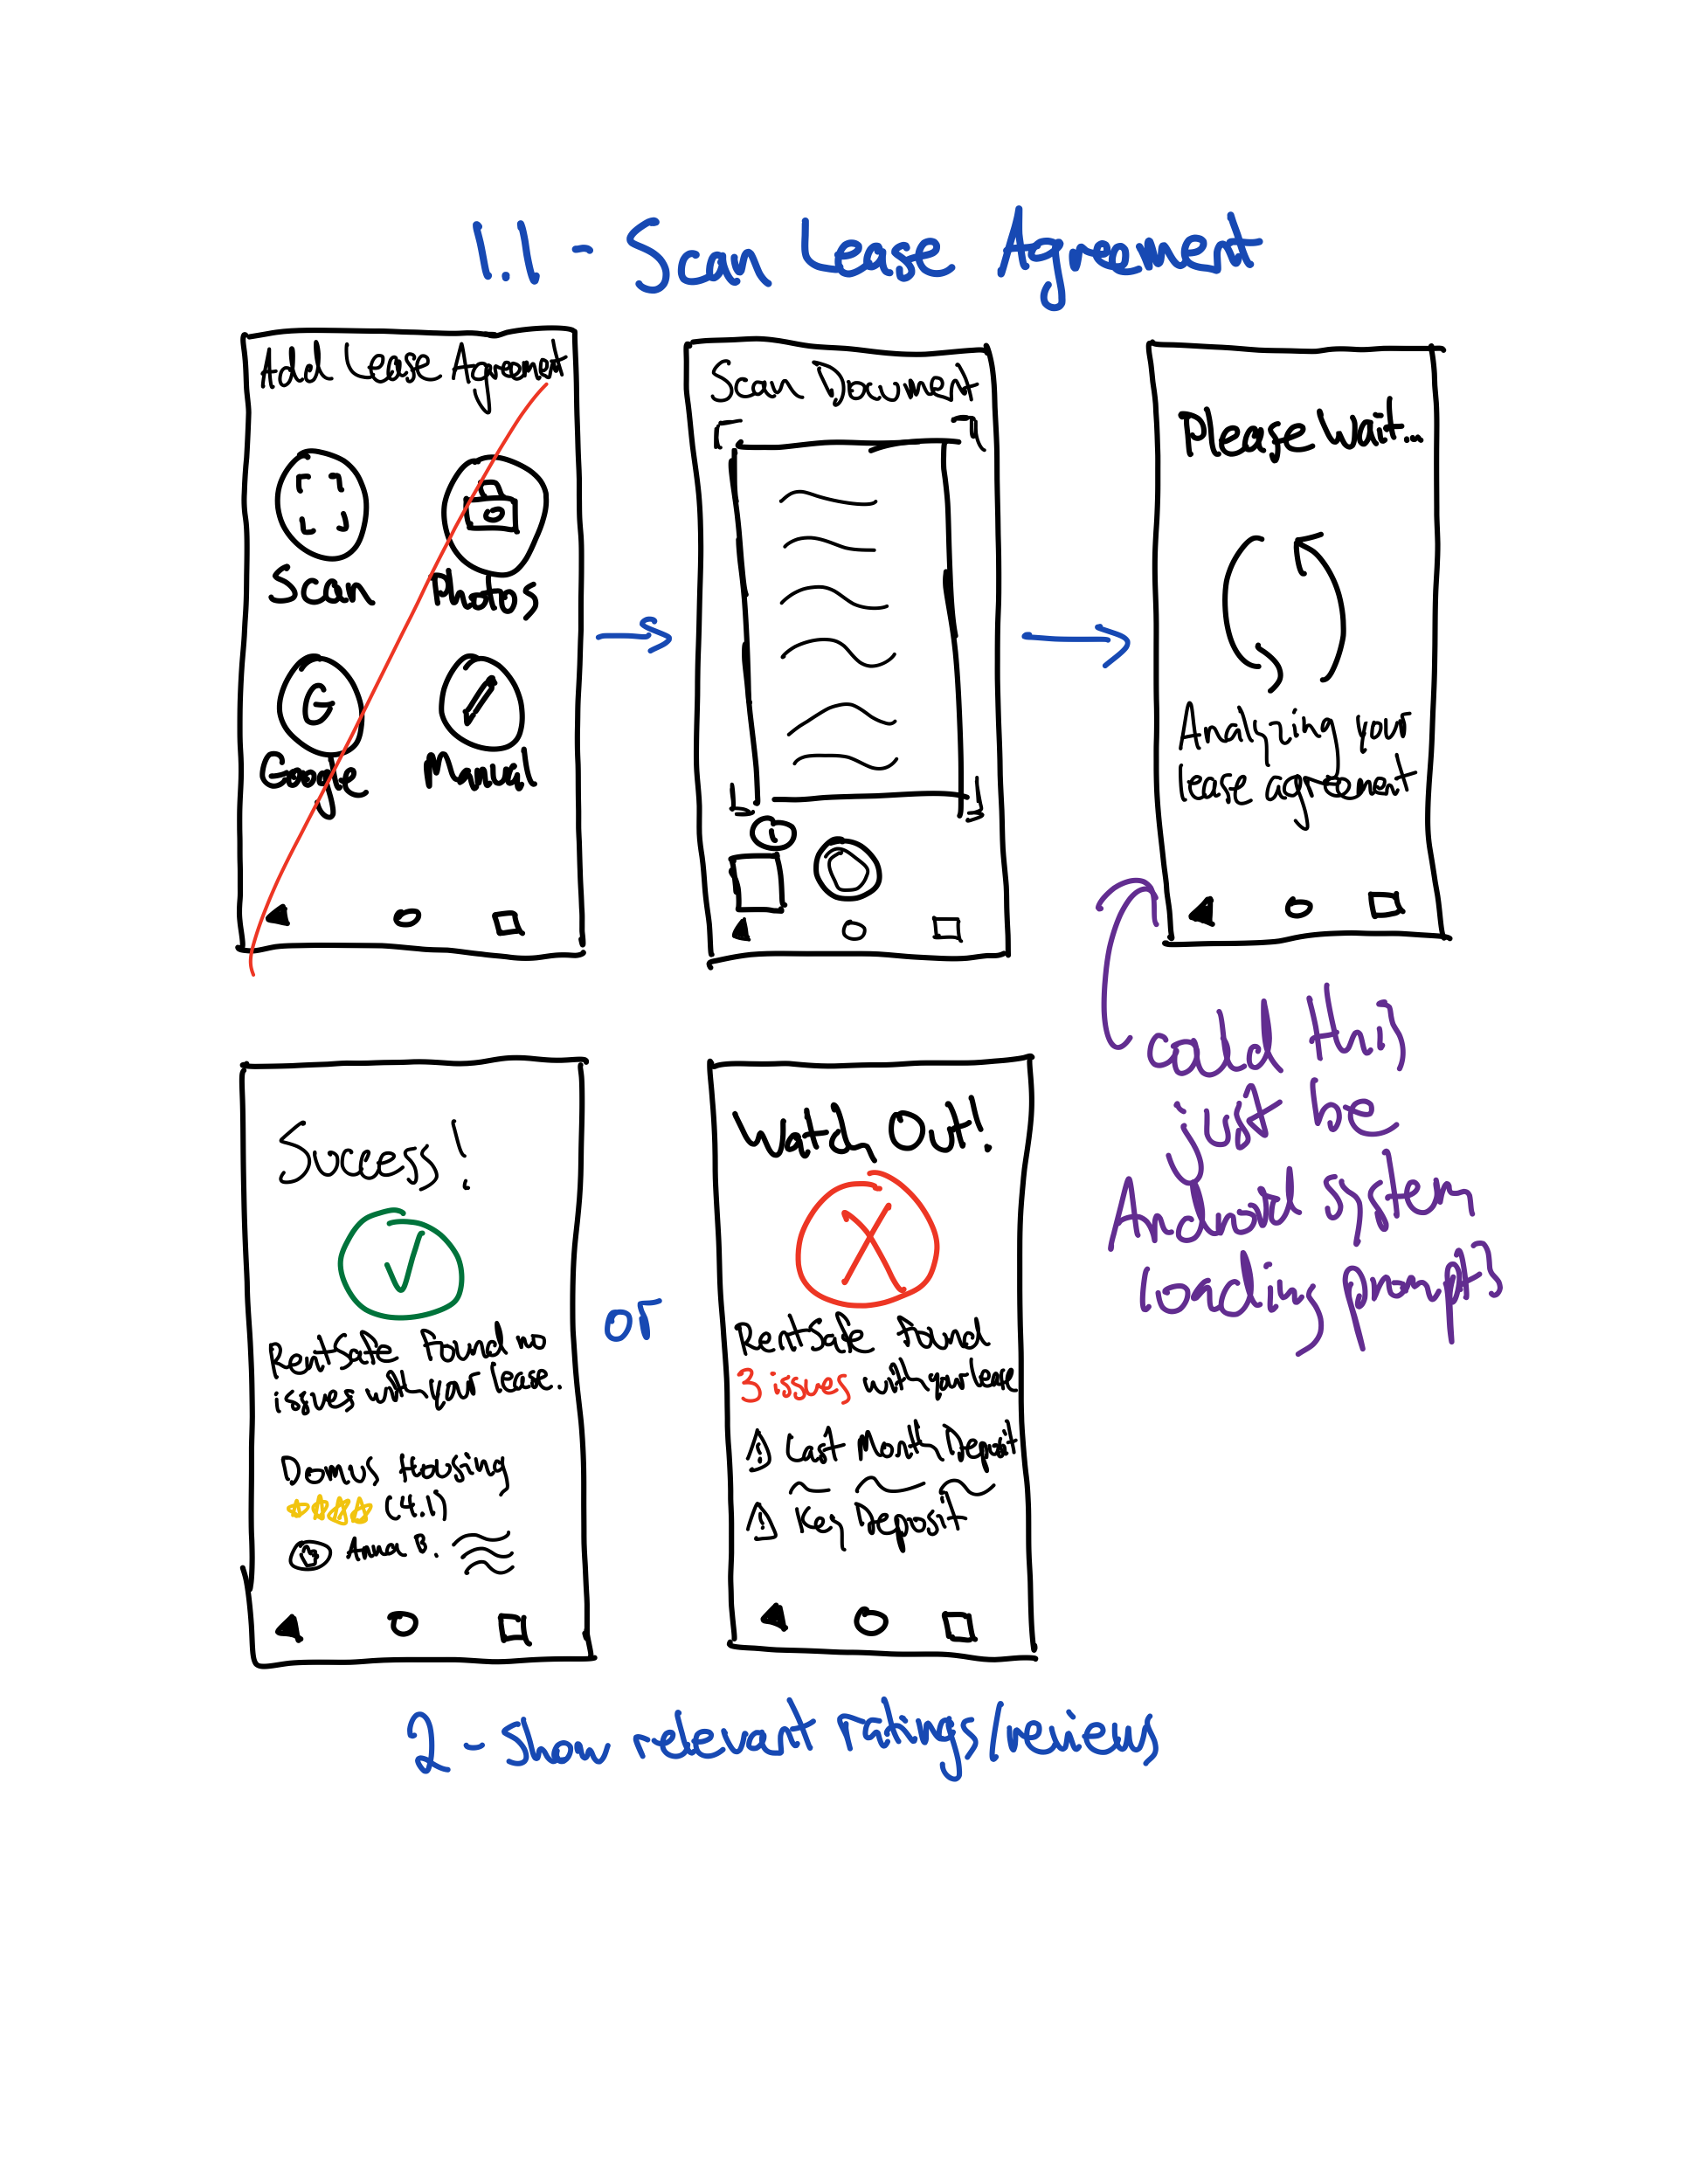 1.1 - Scan Lease Agreement
Add Lease Agreement
Scan
Photos
G
Google
Manual
Scan Document
1
Please wait...
Analyzing your
lease agreement
could this
just be
Android system
loading prompt?
Success!
RentSafe found no
issues with your lease.
Domus Housing
(4.1)
Anna B.
or
Watch Out!
RentSafe found
3 issues with your lease
Last Month Deposit
Key Deposit
2 - Show relevant ratings/reviews